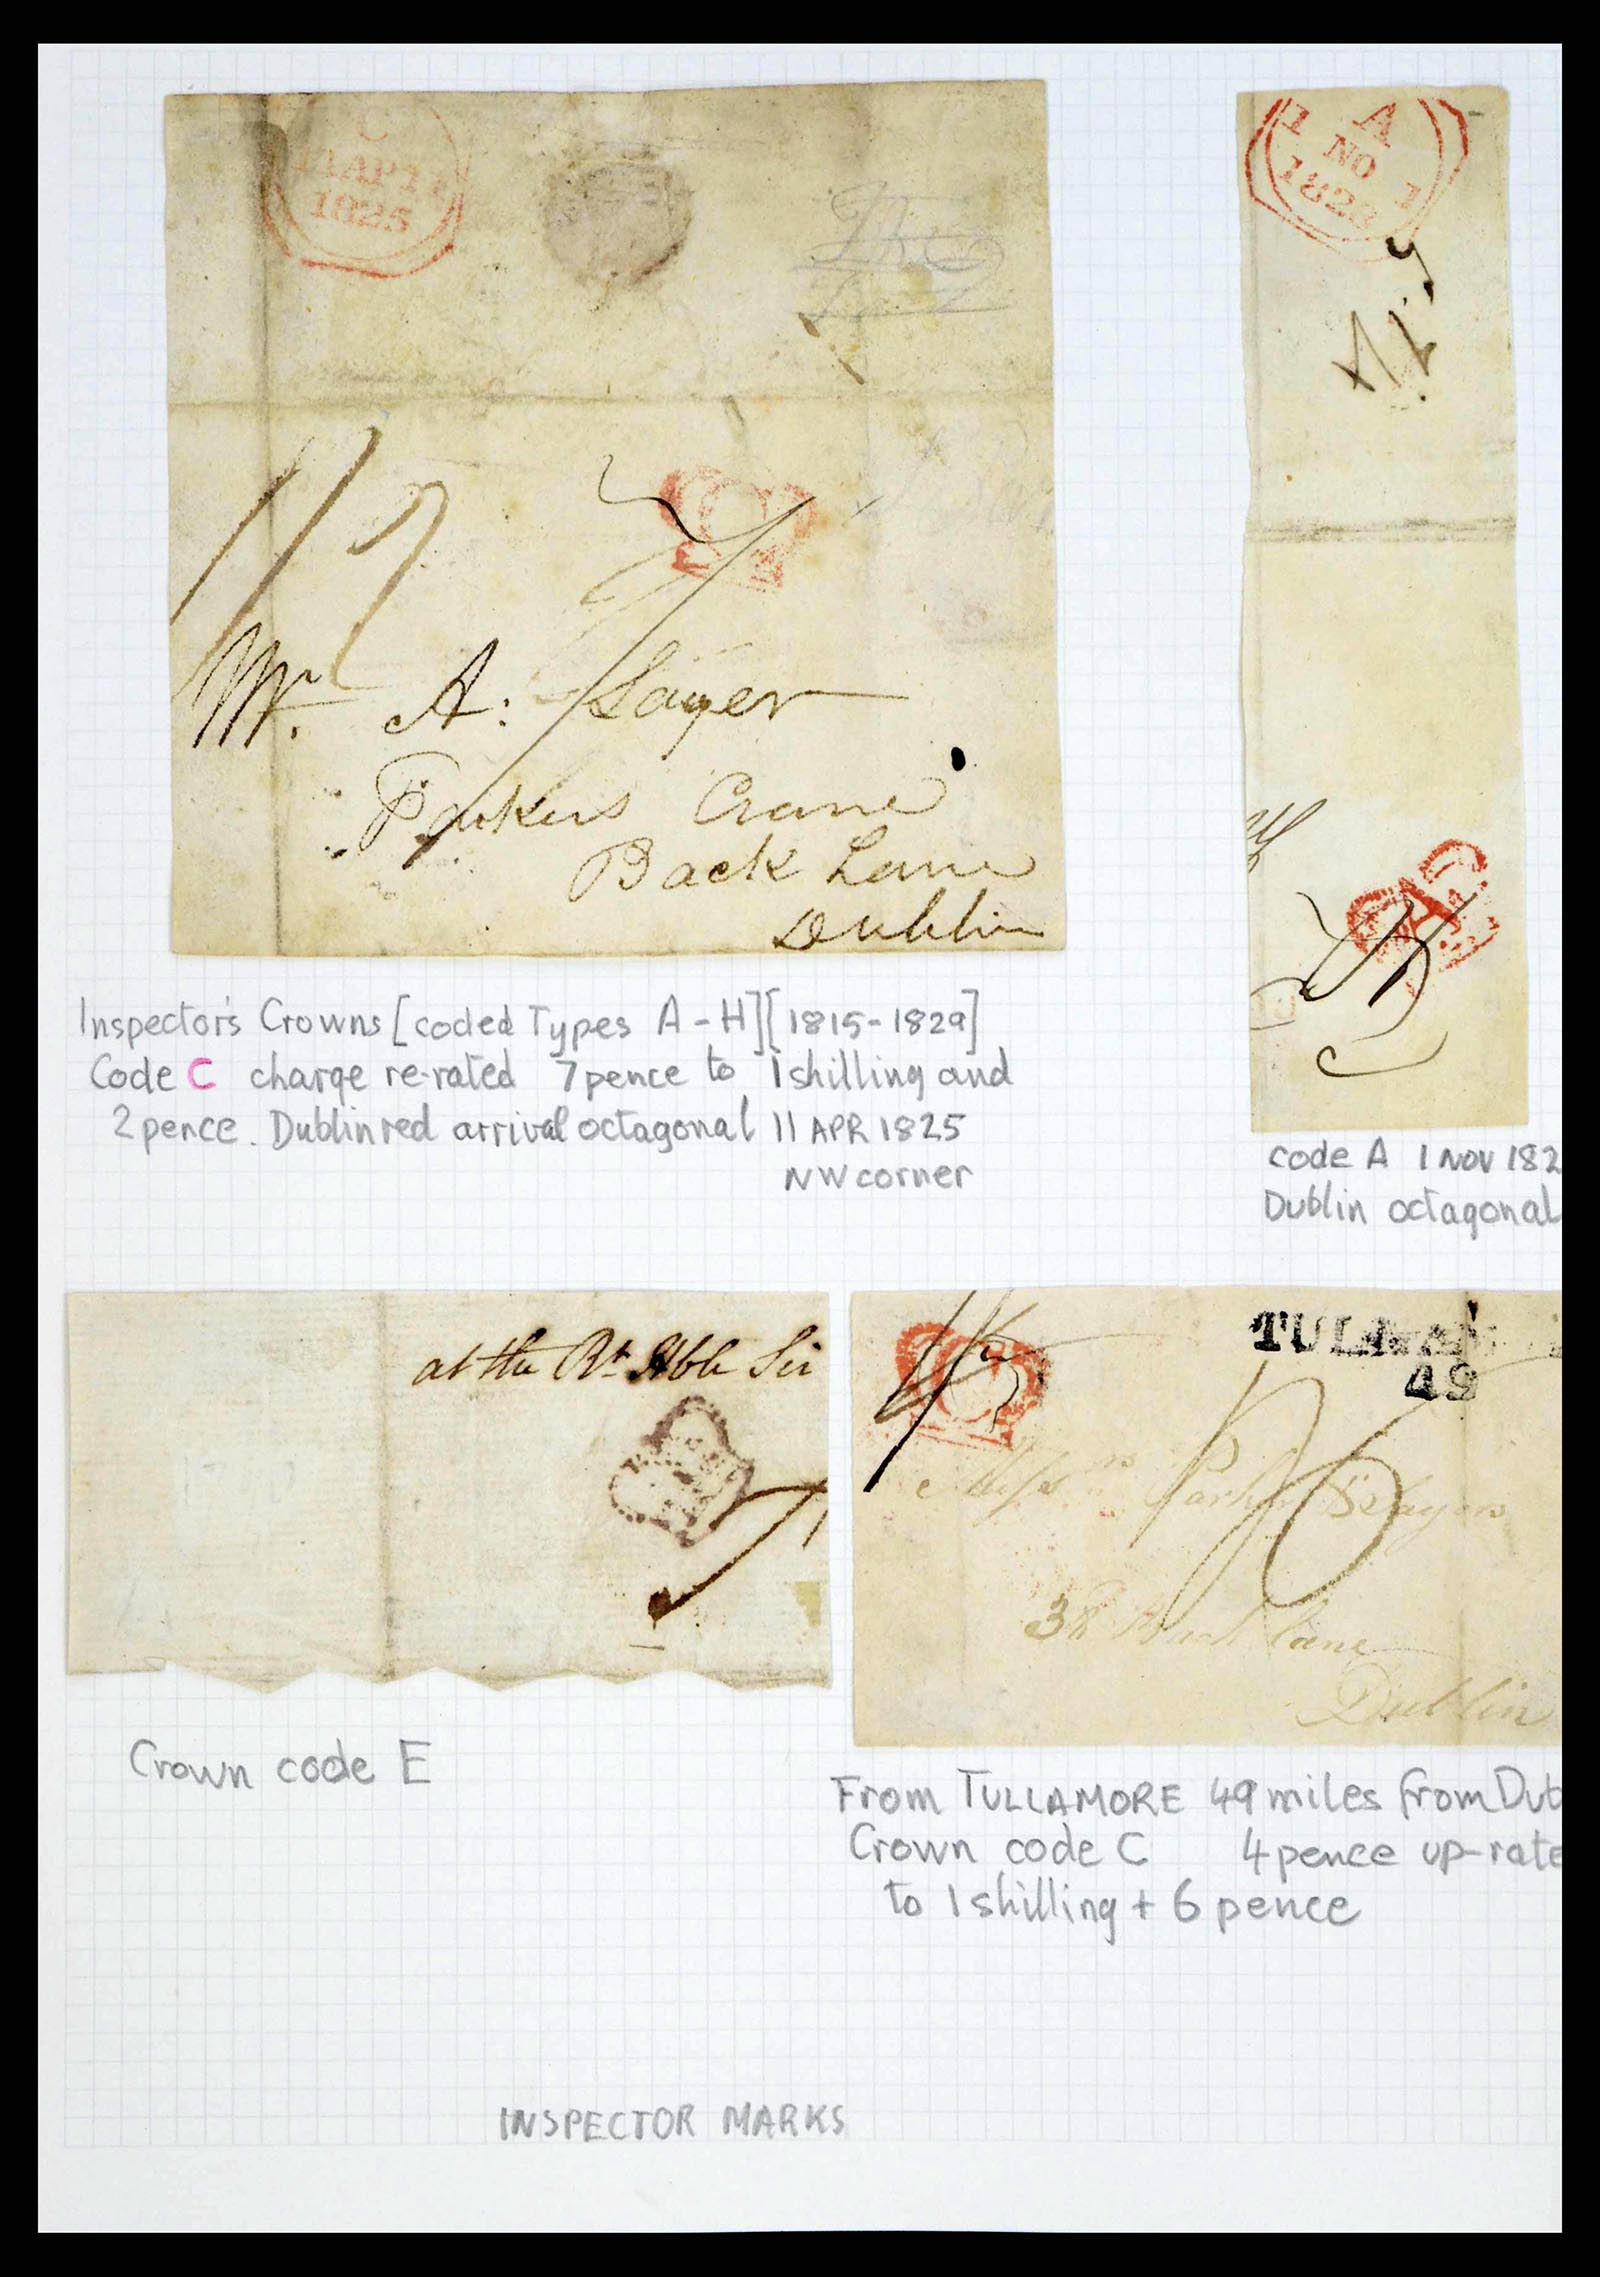 C
11 AP 11
1825
1/2
7
Mr. A: Sayer
Parkers Crane
Back Lane
Dublin
Inspector's Crowns [coded Types A - H] [1815-1829]
Code C charge re-rated 7 pence to 1 shilling and
2 pence. Dublin red arrival octagonal 11 APR 1825
NW corner
A
1 NO 1
182
A
code A 1 NOV 182
Dublin octagonal
at the Rt. Hble Sir
Crown code E
C
TULLAM
49
1/6
Messrs Parker & Sayers
38 Back Lane
Dublin
From TULLAMORE 49 miles from Dub
Crown code C 4 pence up-rate
to 1 shilling + 6 pence
INSPECTOR MARKS